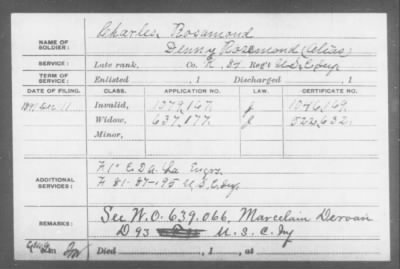 NAME OF SOLDIER: Charles Rosamond
Denny Rosemond (Alias)
SERVICE: Late rank, Co. K, 87 Reg't U.S.C. Inf.
TERM OF SERVICE: Enlisted , 1 Discharged , 1
DATE OF FILING. CLASS. APPLICATION NO. LAW. CERTIFICATE NO.
1891 Dec 11 Invalid, 1079,167 1046,169.
Widow, 637,177. 522,632.
Minor,
ADDITIONAL SERVICES: Engrs.
A 81-87-95 U.S.C. Inf.
REMARKS: See W.O. 639,066. Marcelain
D 93 U.S.C. Inf
Died , 1 , at